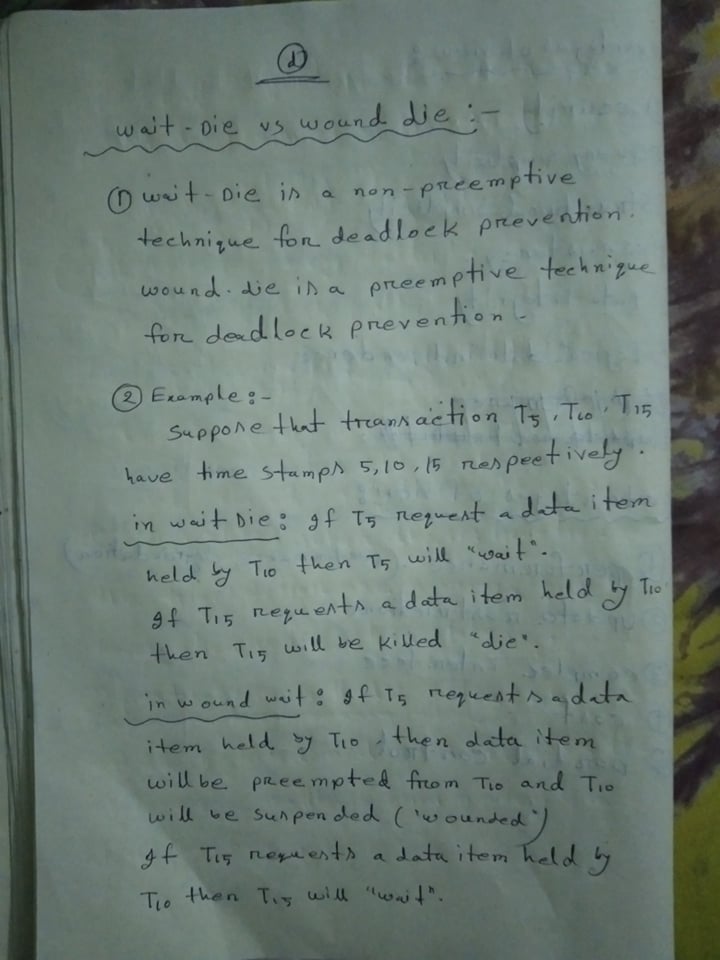 d
wait-Die vs wound die :-
① wait-Die is a non-preemptive
technique for deadlock prevention.
wound-die is a preemptive technique
for deadlock prevention-
② Example :-
Suppose that transaction T5, T10, T15
have time stamps 5,10,15 respectively.
in wait Die : If T5 request a data item
held by T10 then T5 will "wait".
If T15 requests a data item held by T10
then T15 will be killed "die".
in wound wait : If T5 requests a data
item held by T10, then data item
will be preempted from T10 and T10
will be suspended ("wounded")
If T15 requests a data item held by
T10 then T15 will "wait".